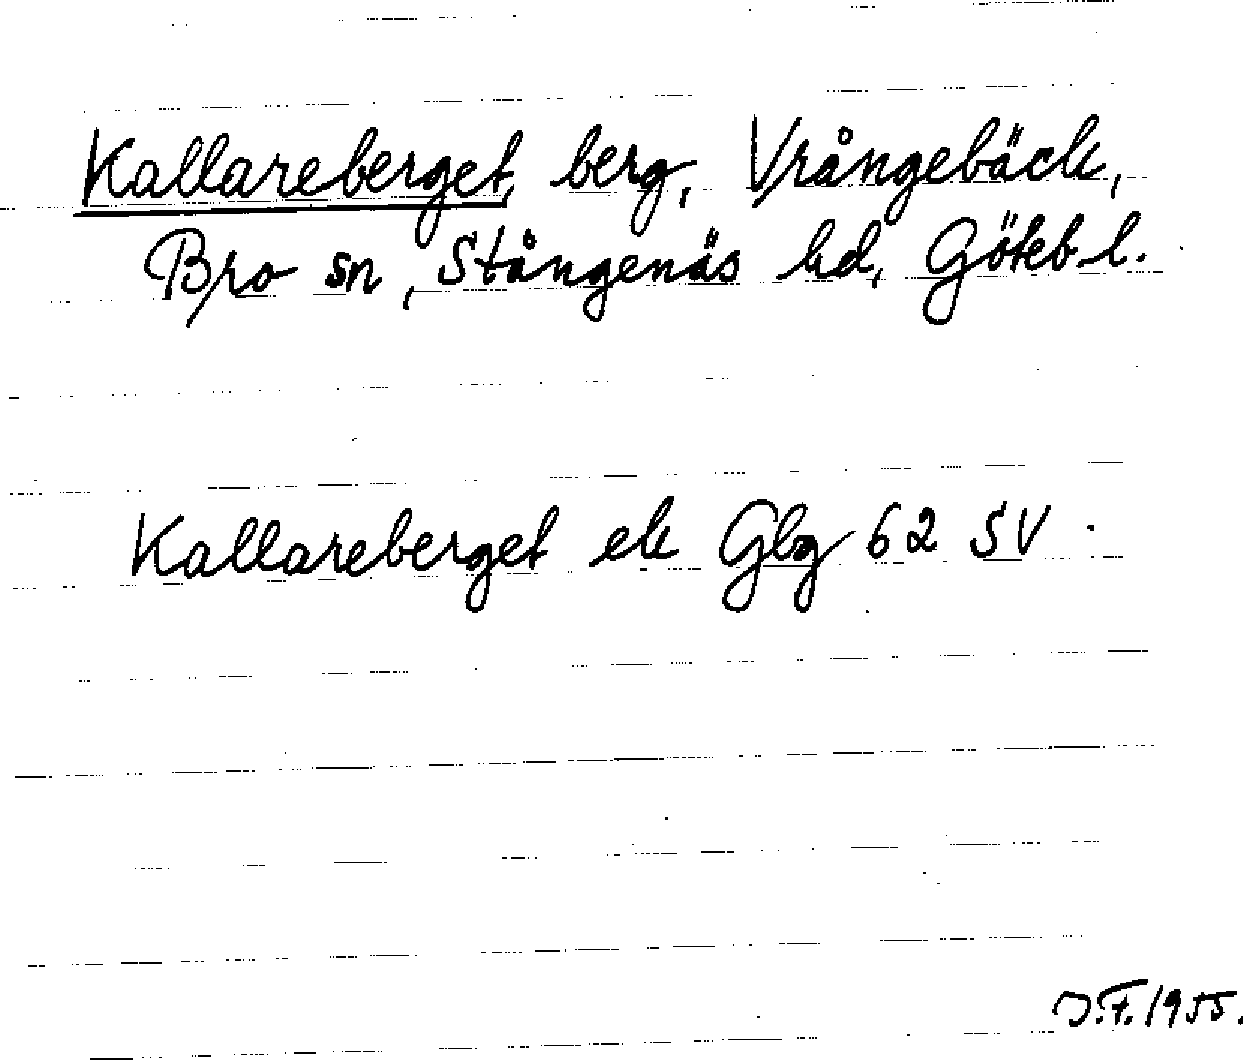 Kallareberget, berg, Vrångebäck,
Bro sn, Stångenäs hd, Göteb. l.
Kallareberget ek Gbg 62 SV
J.F. 1955.